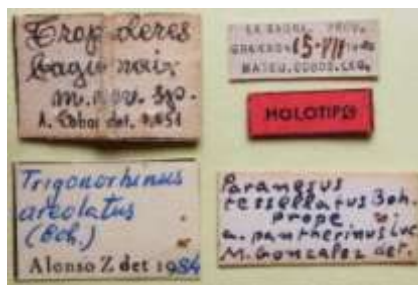 Tropideres
m. nov. sp.
A. Cobos det. 1951
LA SAGRA, PROV.
GRANADA 15-VII
MATEU.COBOS.LEG.
HOLOTIPO
Trigonorhinus
areolatus
(Boh.)
Alonso Z det 1984
Paranesus
tessellatus Boh.
prope
a. pantherinus Luc
M. Gonzalez det.